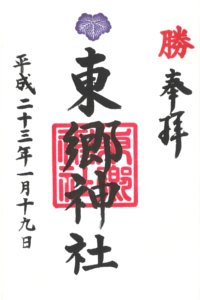 勝
奉拝
東郷神社
平成二十三年一月十九日